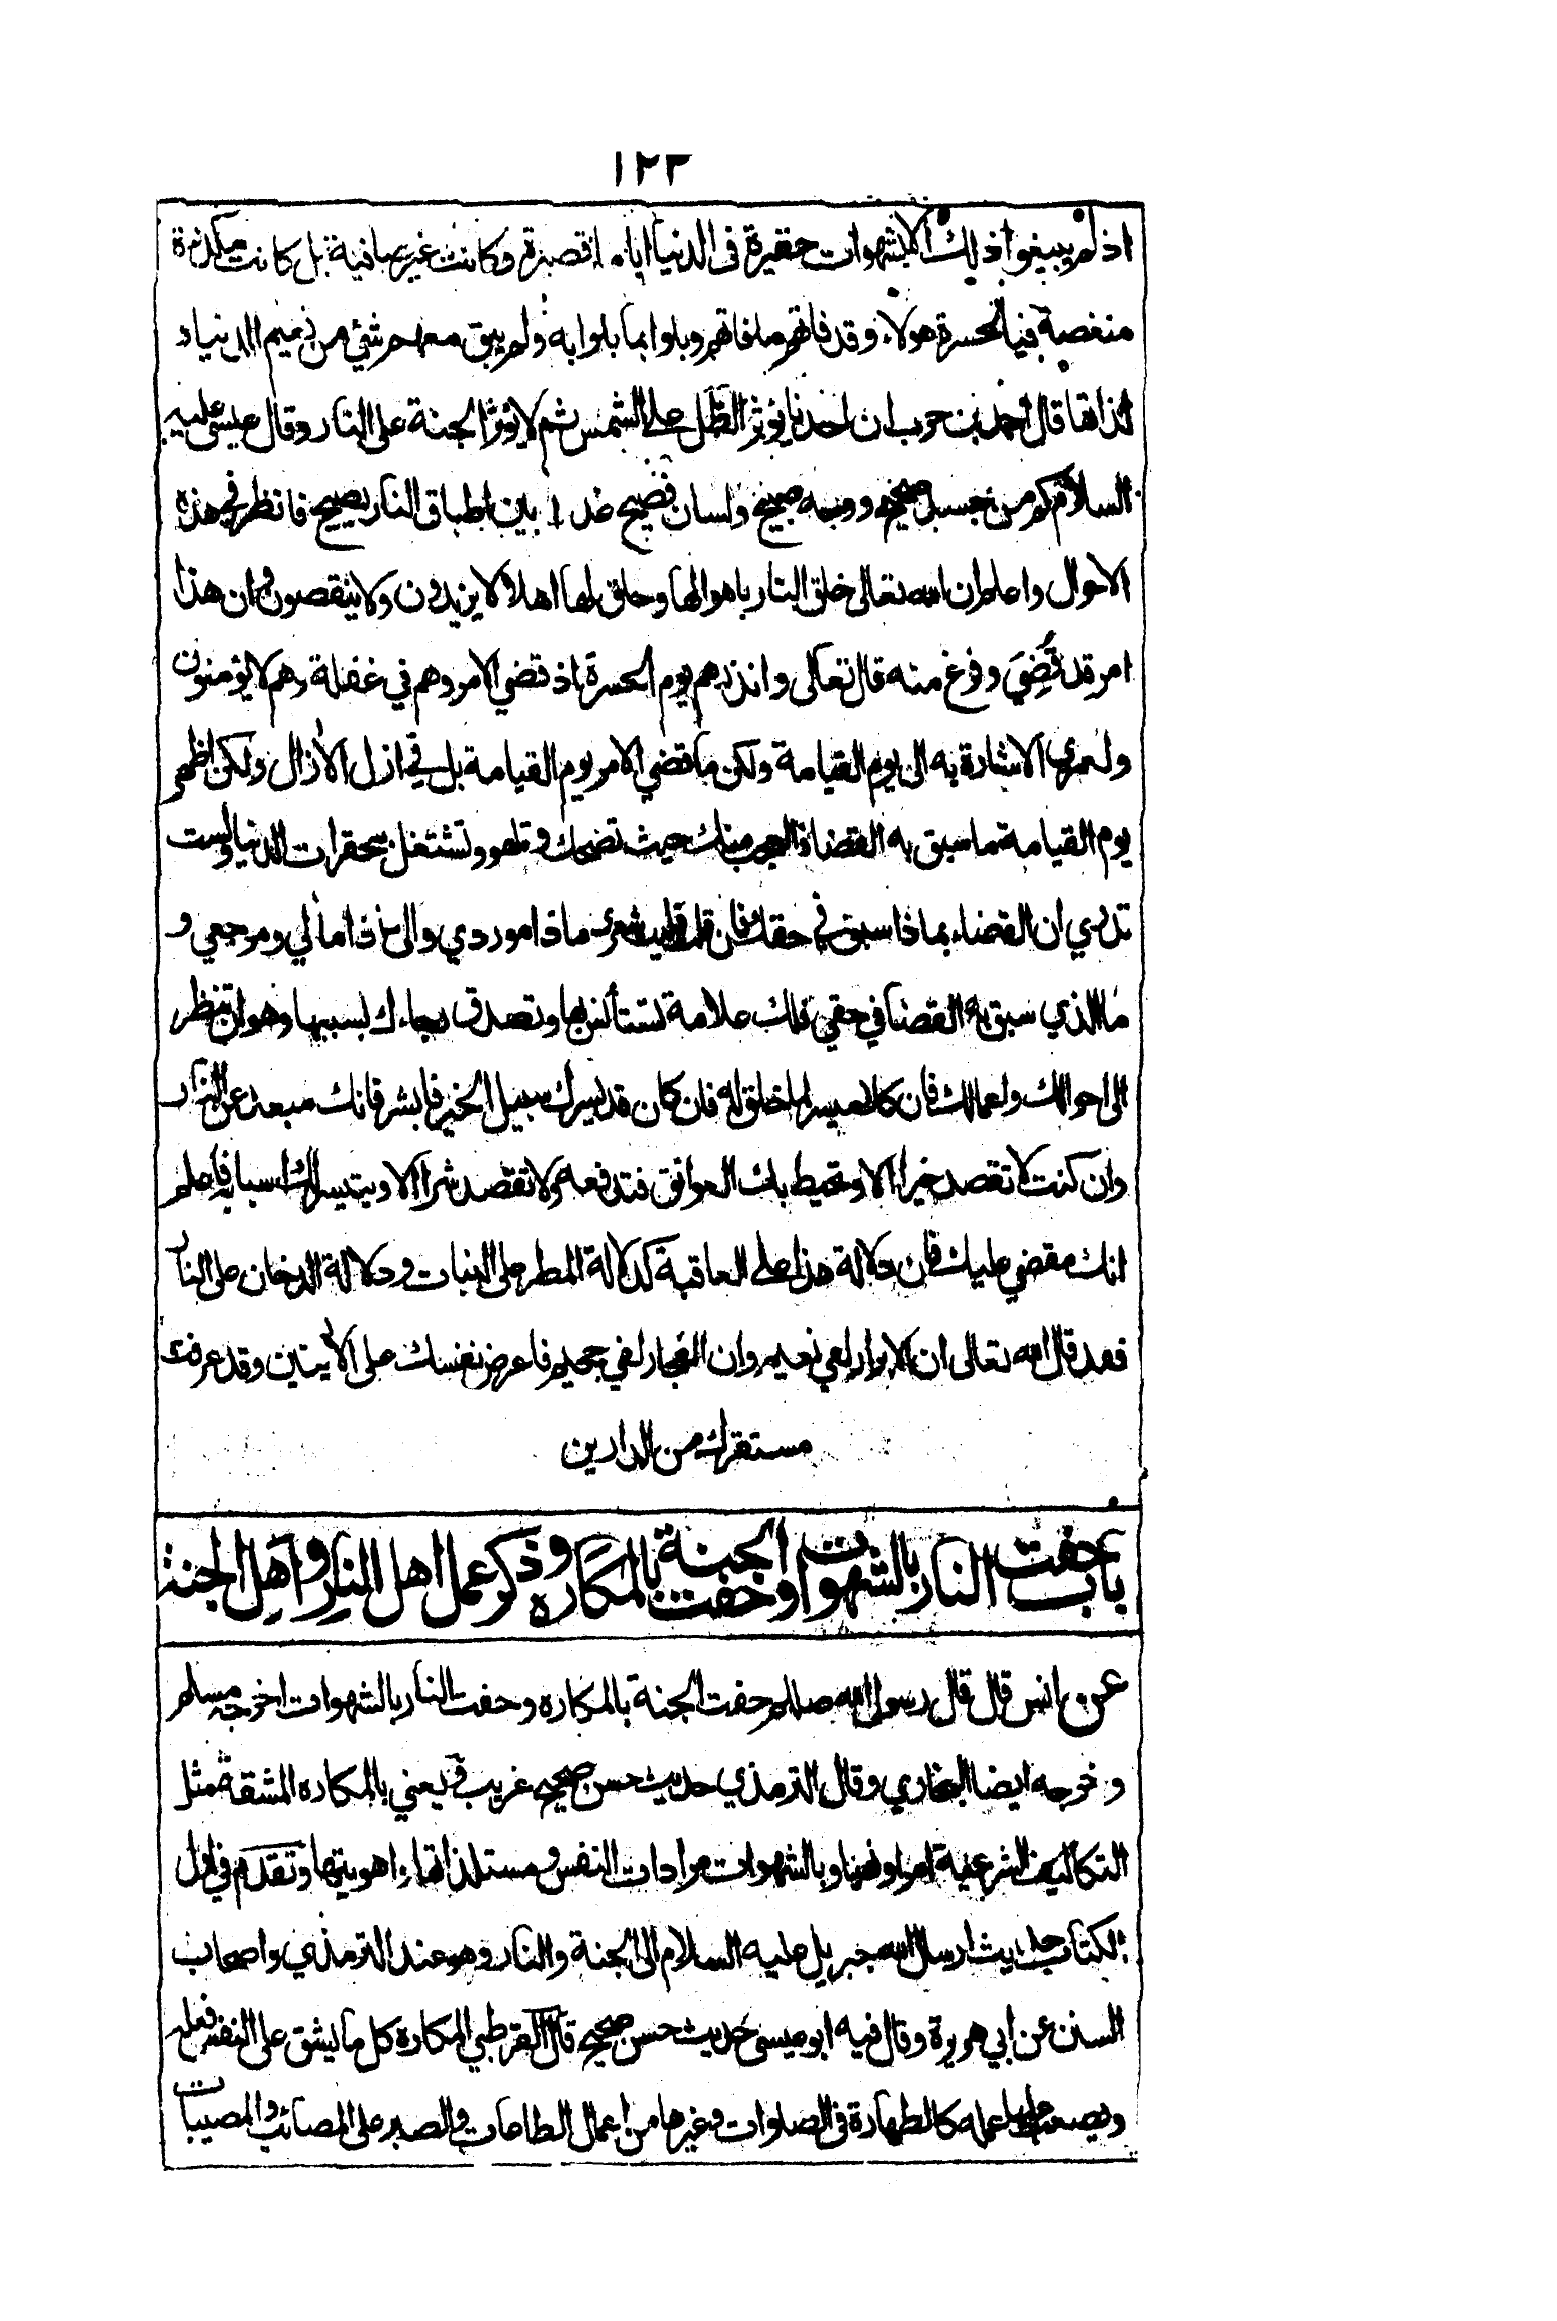 ١٢٣
اذ لم يبيعوا ذلك الا بشهوات حقيرة فى الدنيا اياما قصيرة وكانت غير صافية بل كانت مكدرة
منغصة فيا لحسرة هولاء وقد فاتهم ما فاتهم وبلوا بما بلوا به ولم يبق معهم شئي من نعيم الدنيا و
لذاتها قال احمد بن حرب ان احدنا يؤثر الظل على الشمس ثم لا يؤثر الجنة على النار وقال عيسى عليه
السلام كم من جسد صحيح ووجه صبيح ولسان فصيح غدا بين اطباق النار يصيح فانظر في هذه
الاحوال واعلم ان الله تعالى خلق النار باهوالها وخلق لها اهلا لا يزيدون ولا ينقصون وان هذا
امر قد قُضِيَ وفرغ منه قال تعالى وانذرهم يوم الحسرة اذ قضي الامر وهم في غفلة وهم لا يؤمنون
ولعمري الاشارة به الى يوم القيامة ولكن ما قضي الامر يوم القيامة بل في ازل الآزال ولكن اظهر
يوم القيامة ما سبق به القضاء فالعجب منك حيث تضحك وتلهو وتشتغل بحقرات الدنيا ولست
تدري ان القضاء بماذا سبق في حقك فان قلت فليت شعري ماذا موردي والى ماذا مآلي ومرجعي و
ما الذي سبق به القضا في حقي فلك علامة تستأنس بها وتصدق رجاءك بسببها وهو ان تنظر
الى احوالك واعمالك فان كلا ميسر لما خلق له فان كان قد يسرلك سبيل الخير فابشر فانك مبعد عن النار
وان كنت لا تقصد خيرا الا وتحيط بك العوائق فتدفعه ولا تقصد شرا الا ويتيسر لك اسبابه فاعلم
انك مقضي عليك فان دلالة هذا على العاقبة كدلالة المطر على النبات ودلالة الدخان على النار
فقد قال الله تعالى ان الابرار لفي نعيم وان الفجار لفي جحيم فاعرض نفسك على الآيتين وقد عرفت
مستقرك من الدارين
باب حفت النار بالشهوات وحفت الجنة بالمكاره وذكر عمل اهل النار واهل الجنة
عن انس قال قال رسول الله صللم حفت الجنة بالمكاره وحفت النار بالشهوات اخرجه مسلم
وخرجه ايضا البخاري وقال الترمذي حديث حسن صحيح غريب ف يعني بالمكاره المشقة مثل
التكاليف الشرعية امرا ونهيا وبالشهوات مرادات النفس ومستلذاتها واهويتها وتقدم في اول
الكتاب حديث ارسل الله جبريل عليه السلام الى الجنة والنار وهو عند الترمذي واصحاب
السنن عن ابي هريرة وقال فيه ابو عيسى حديث حسن صحيح قال القرطبي المكاره كل ما يشق على النفس فعله
ويصعب عليها عمله كالطهارة فى الصلوات وغيرها من اعمال الطاعات والصبر على المصائب والمصيبات